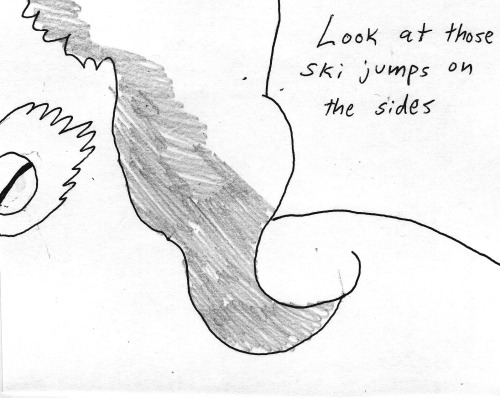 Look at those
ski jumps on
the sides